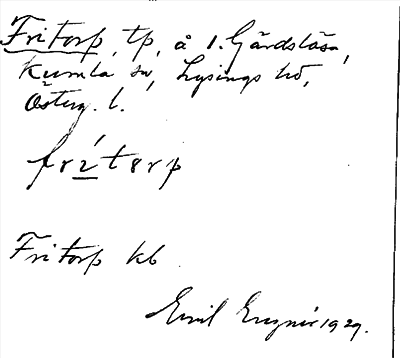 Fritorp, tp, å 1. Gärdslösa,
Kumla sn, Lysings hd,
Österg. l.
frítorp
Fritorp kb
Emil 1929.